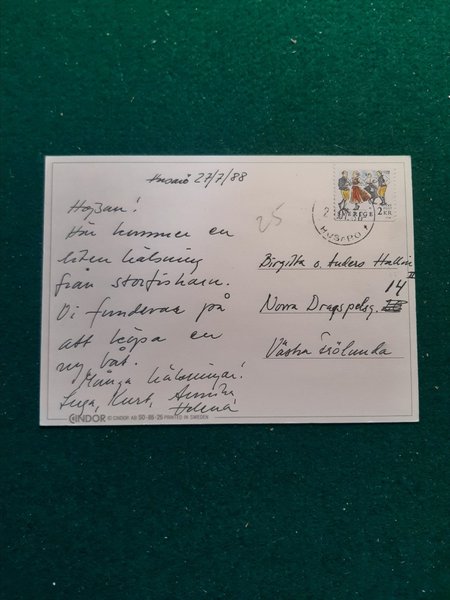 Husarö 27/7/88
Hejsan!
Här kommer en
liten hälsning
från storfiskarn.
Vi funderar på
att köpa en
ny båt.
Många hälsningar!
Inga, Kurt,
Helena
25
SVERIGE 2 KR
HUSARÖ
Birgitta o. Anders
14
Norra Dragspelsg.
Västra Frölunda
CINDOR © CINDOR AB 50-85-25 PRINTED IN SWEDEN